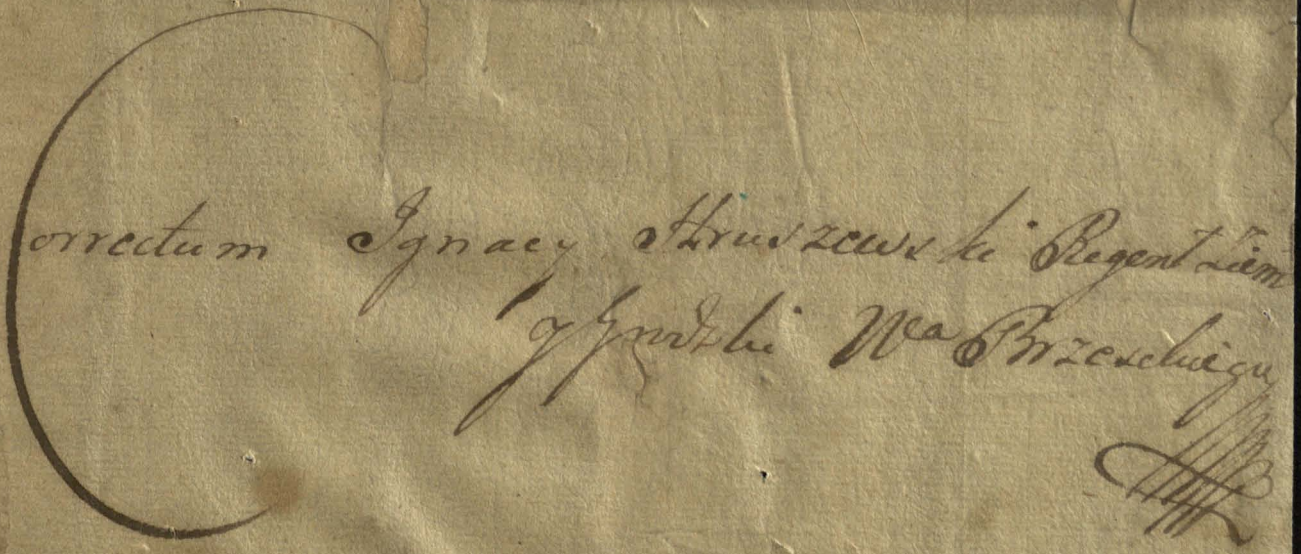 Correctum Ignacy Hruszewski Regent Ziem
y Grodzki Wa Brzeskiego